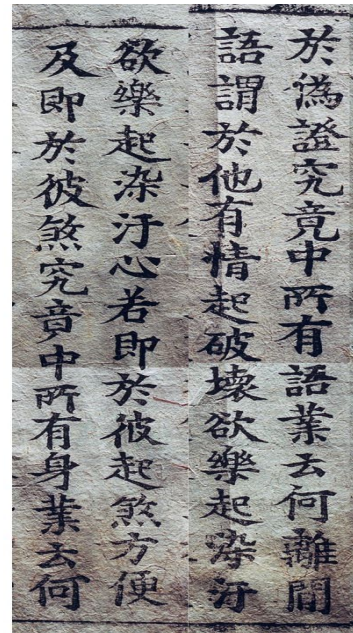 於偽證究竟中所有語業云何離間
語謂於他有情起破壞欲樂起染汙
欲樂起染汙心若即於彼起煞方便
及即於彼煞究竟中所有身業云何